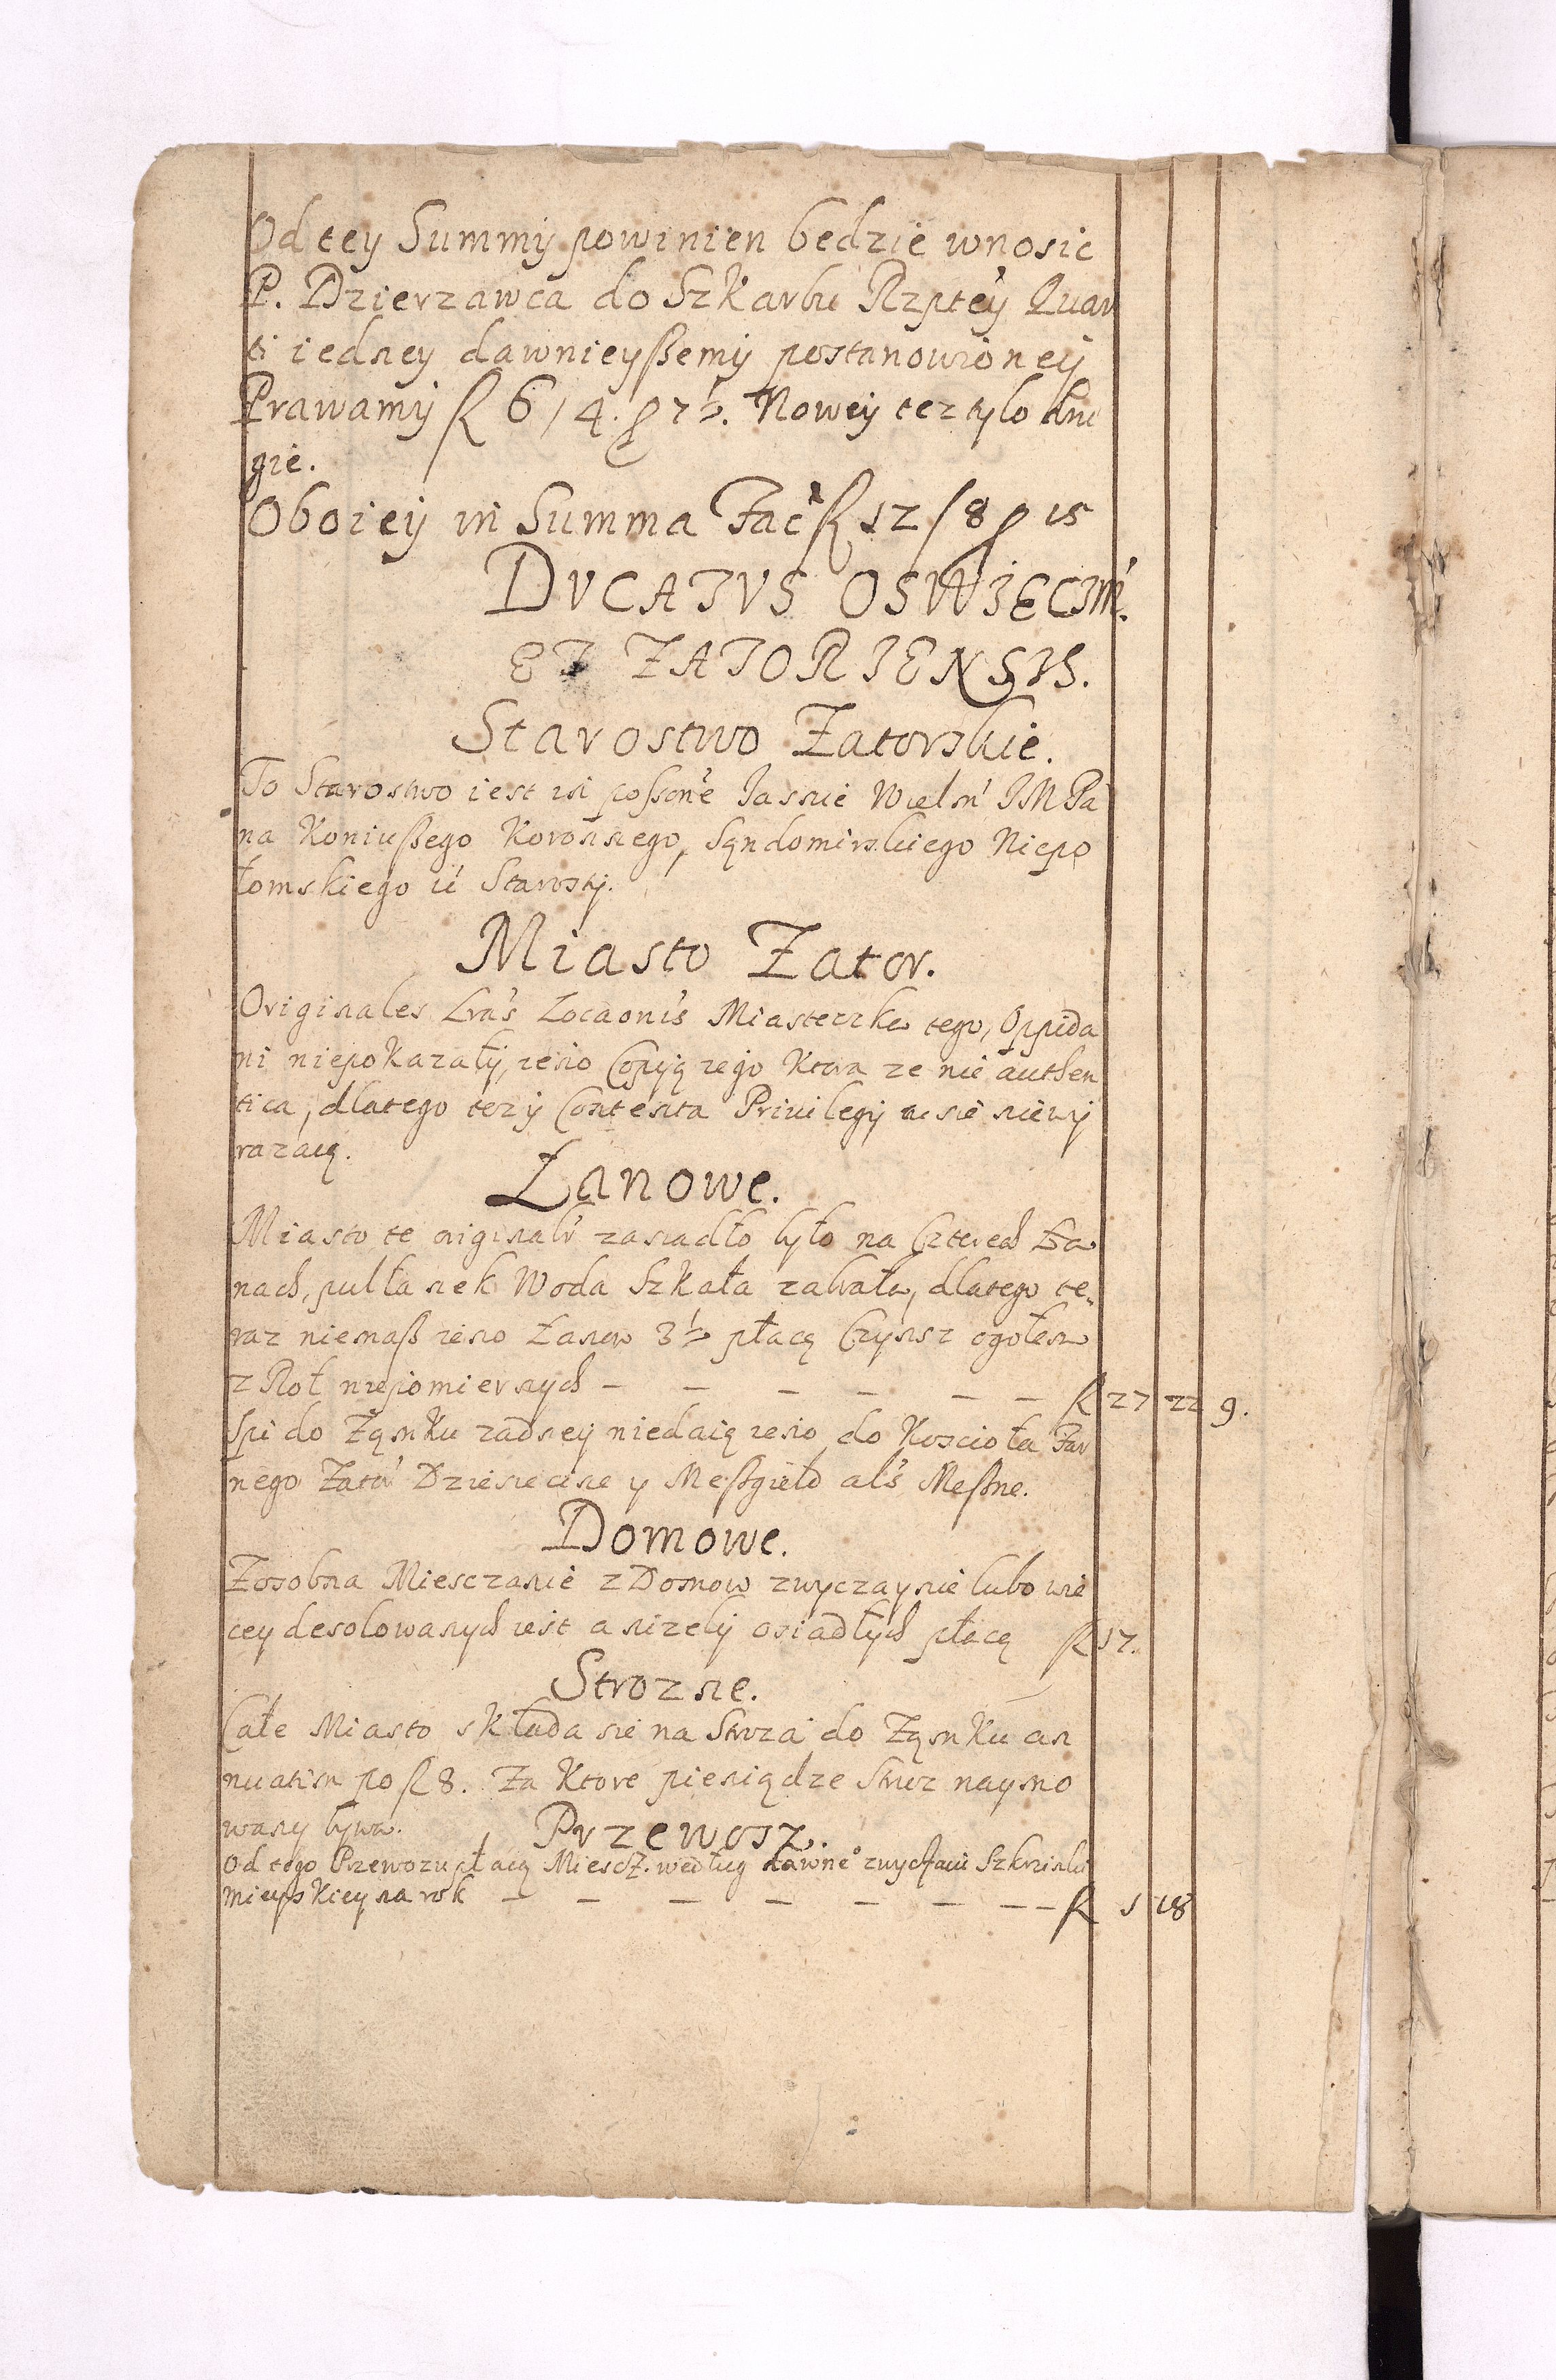 Od tey Summy powinien będzie wnosic
P. Dzierzawca do Szkarbu Rzptey Quar
ti iedney dawnieyßemy postanowioney
Prawamy fl 6 / 4. 7½. Nowey tez tylo dru
gie.
Oboiey in Summa Fac fl 12 / 8 15
DVCATVS OSWIĘCIM.
ET ZATORIENSIS.
Starostwo Zatorskie.
To Starostwo iest in poßone Jasnie Wieln JM Pa
na Koniußego Koronnego, Sąndomirskiego Niepo
łomskiego Starosty.
Miasto Zator.
Originales Lras Locaonis Miasteczka tego, Oppida
ni niepokazały, ieno Copyą iego Ktora ze nie authen
tica, dlatego tezy Contenta Privilegy nie niewy
razaią.
Łanowe.
Miasto te originalr zasiadło było na Cztere​ch Ła
nach, pułłanek Woda Szkała zabrała, dlatego te,
raz niemaß ieno Łanow 3½ płacą Czynsz ogołem
z Rol niepomiernych - - - - - - fl 27 22 9.
Spi do Ząmku zadney niedaią ieno do Koscioła Far
nego Zator Dziesiecine y Meßgield als Meßne.
Domowe.
Zosobna Miesczanie z Domow zwyczaynie lubo wie
cey desolowanych iest anizely osiadłych płacą fl 17.
Strozne.
Całe Miasto składa sie na Stroza do Ząmku an
nuatim po fl 8. Za Ktore pieniądze Stroz naymo
wany bywa.
Przewosz.
Od tego Przewozu płacą Miescz. według dawne° zwyczaiu Szkrzinki
mieyskiey na rok - - - - - - - - fl 1 18